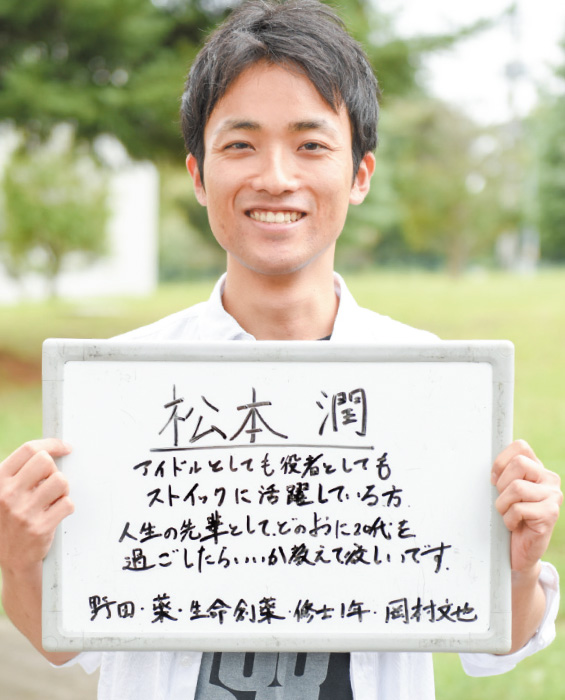 松本 潤
アイドルとしても役者としても
ストイックに活躍している方。
人生の先輩として、どのように20代を
過ごしたらいいか教えて欲しいです。
野田・薬・生命創薬・修士1年・岡村文也